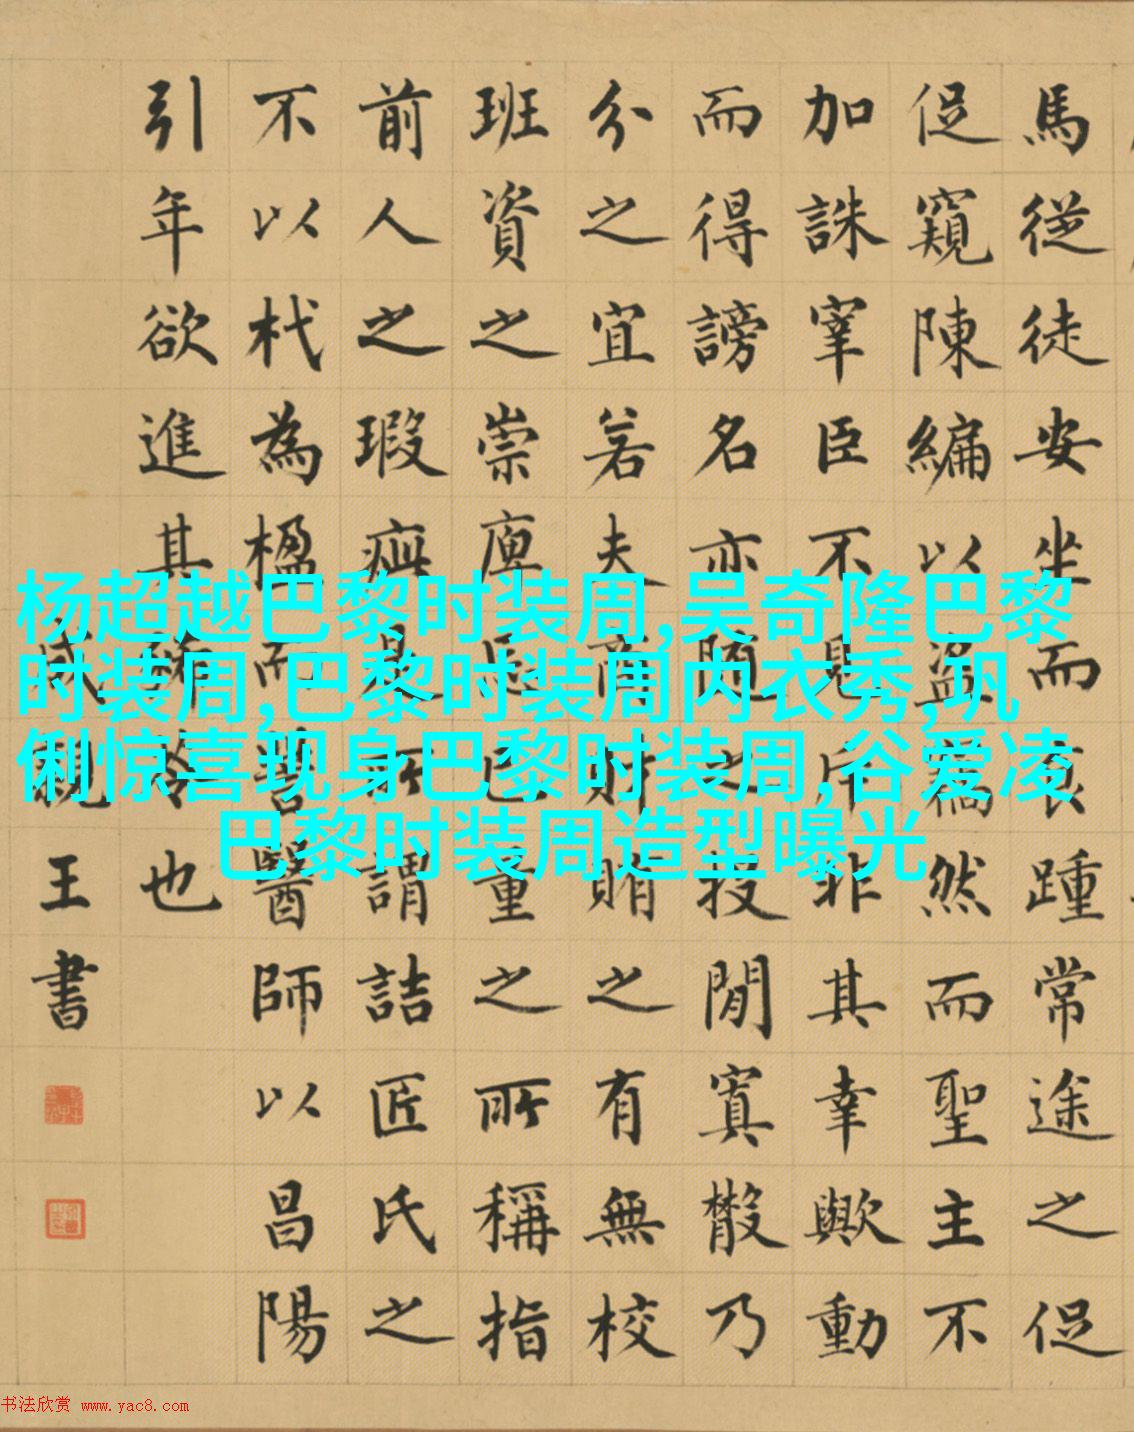 馬從徒安坐而食踵常途之促
促窺陳編以盜竊然而聖主不
加誅宰臣不見斥非其幸歟動
而得謗名亦隨之投閒寘散乃
分之宜若夫商財賄之有無校
班資之崇庳忘己量之所稱指
前人之瑕疵是所謂詰匠氏之
不以杙為楹而訾醫師以昌陽
引年欲進其豨苓也
成親王書
杨超越巴黎时装周,吴奇隆巴黎
时装周,巴黎时装周内衣秀,巩
俐惊喜现身巴黎时装周,谷爱凌
巴黎时装周造型曝光
书法欣赏 www.yac8.com